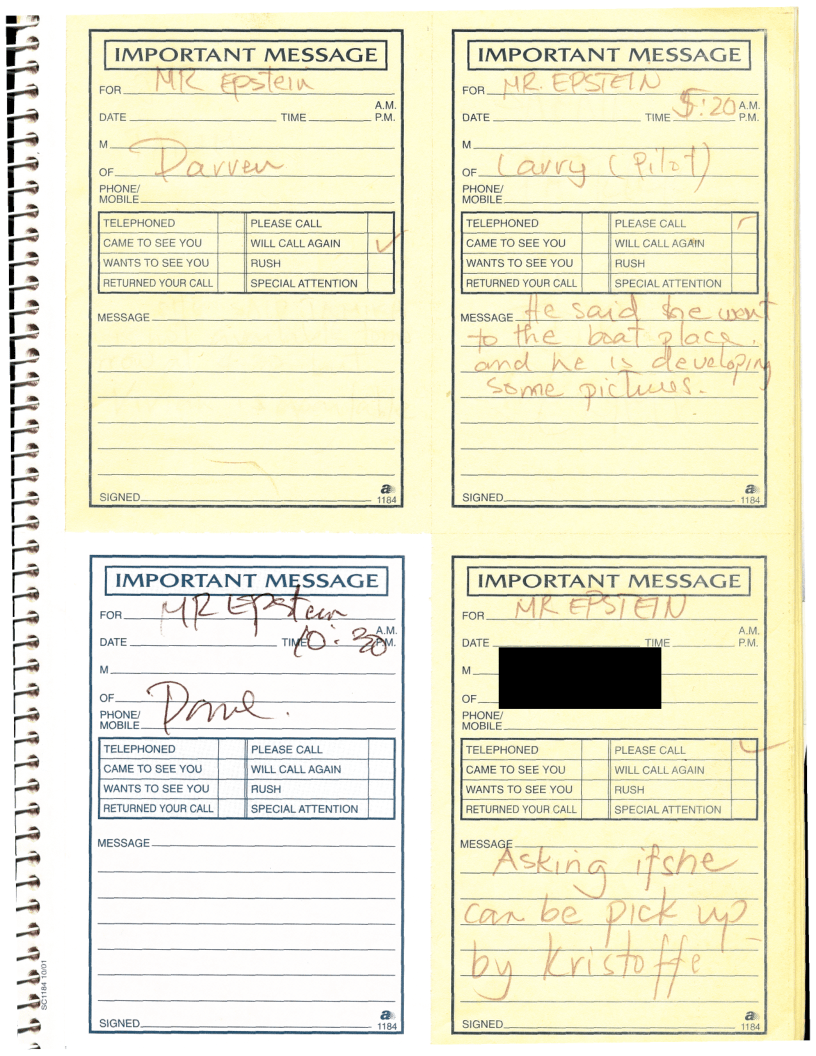 IMPORTANT MESSAGE
FOR MR Epstein
A.M.
DATE TIME P.M.
M
OF Darren
PHONE/
MOBILE
TELEPHONED PLEASE CALL
CAME TO SEE YOU WILL CALL AGAIN ✓
WANTS TO SEE YOU RUSH
RETURNED YOUR CALL SPECIAL ATTENTION
MESSAGE
SIGNED
a
1184
IMPORTANT MESSAGE
FOR MR. EPSTEIN
A.M.
DATE TIME 5:20 P.M.
M
OF Larry (Pilot)
PHONE/
MOBILE
TELEPHONED PLEASE CALL
CAME TO SEE YOU WILL CALL AGAIN
WANTS TO SEE YOU RUSH
RETURNED YOUR CALL SPECIAL ATTENTION
MESSAGE He said he went
to the boat place.
and he is developing
some pictures.
SIGNED
a
1184
IMPORTANT MESSAGE
FOR MR Epstein
A.M.
DATE TIME 10:30 P.M.
M
OF
PHONE/
MOBILE
TELEPHONED PLEASE CALL
CAME TO SEE YOU WILL CALL AGAIN
WANTS TO SEE YOU RUSH
RETURNED YOUR CALL SPECIAL ATTENTION
MESSAGE
SIGNED
a
1184
SC1184 10/01
IMPORTANT MESSAGE
FOR MR EPSTEIN
A.M.
DATE TIME P.M.
M
OF
PHONE/
MOBILE
TELEPHONED PLEASE CALL ✓
CAME TO SEE YOU WILL CALL AGAIN
WANTS TO SEE YOU RUSH
RETURNED YOUR CALL SPECIAL ATTENTION
MESSAGE
Asking if she
can be pick up
by Kristoffe
SIGNED
a
1184